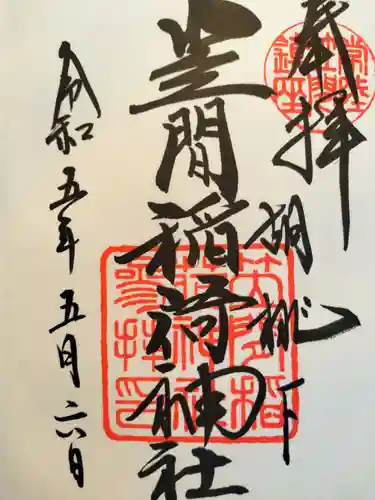 奉拝
胡桃下
笠間稲荷神社
令和五年五月六日